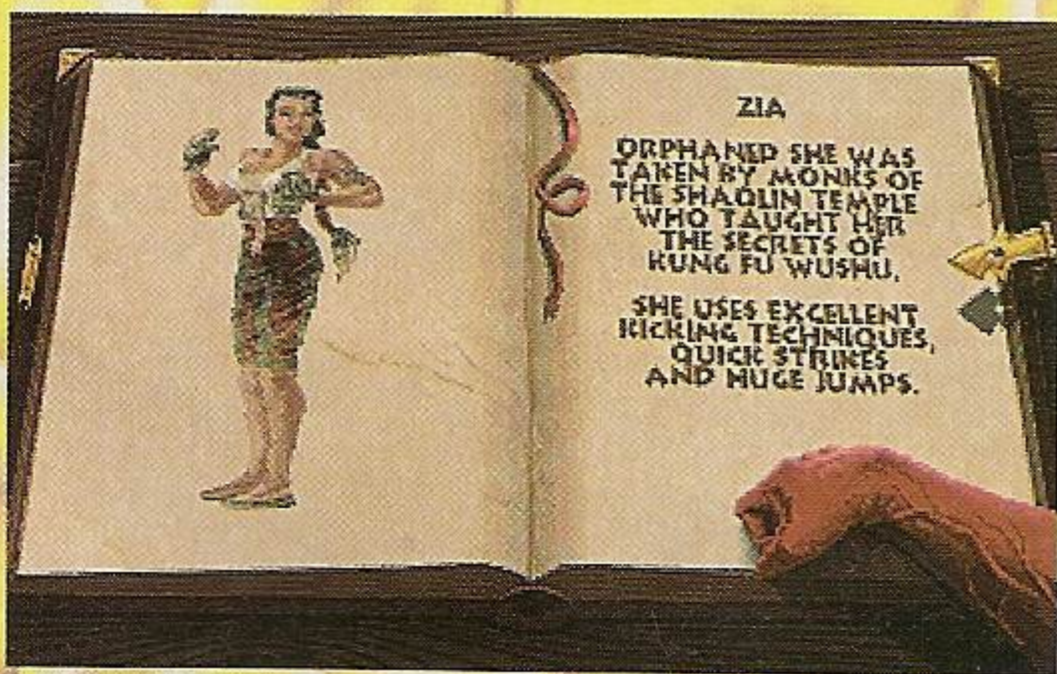 ZIA
ORPHANED SHE WAS
TAKEN BY MONKS OF
THE SHAOLIN TEMPLE
WHO TAUGHT HER
THE SECRETS OF
KUNG FU WUSHU.
SHE USES EXCELLENT
KICKING TECHNIQUES,
QUICK STRIKES
AND HUGE JUMPS.